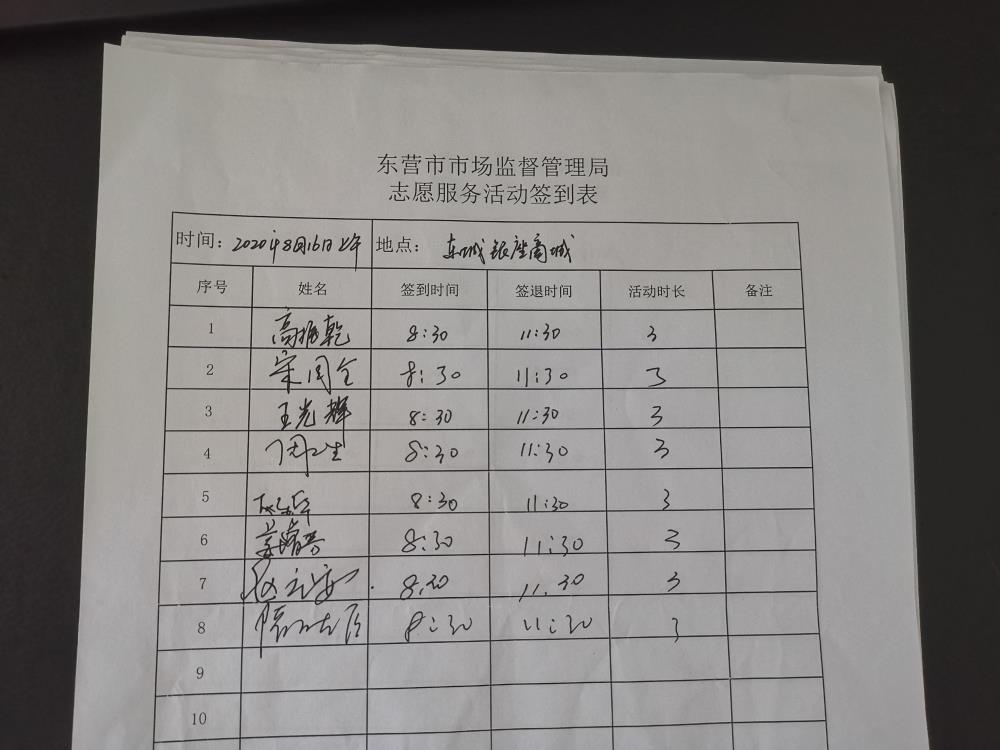 东营市市场监督管理局
志愿服务活动签到表
时间：2020年8月16日上午 地点：东城银座商城
序号 姓名 签到时间 签退时间 活动时长 备注
1 高振乾 8:30 11:30 3
2 宋同全 8:30 11:30 3
3 王光辉 8:30 11:30 3
4 8:30 11:30 3
5 8:30 11:30 3
6 8:30 11:30 3
7 8:30 11:30 3
8 8:30 11:30 3
9
10